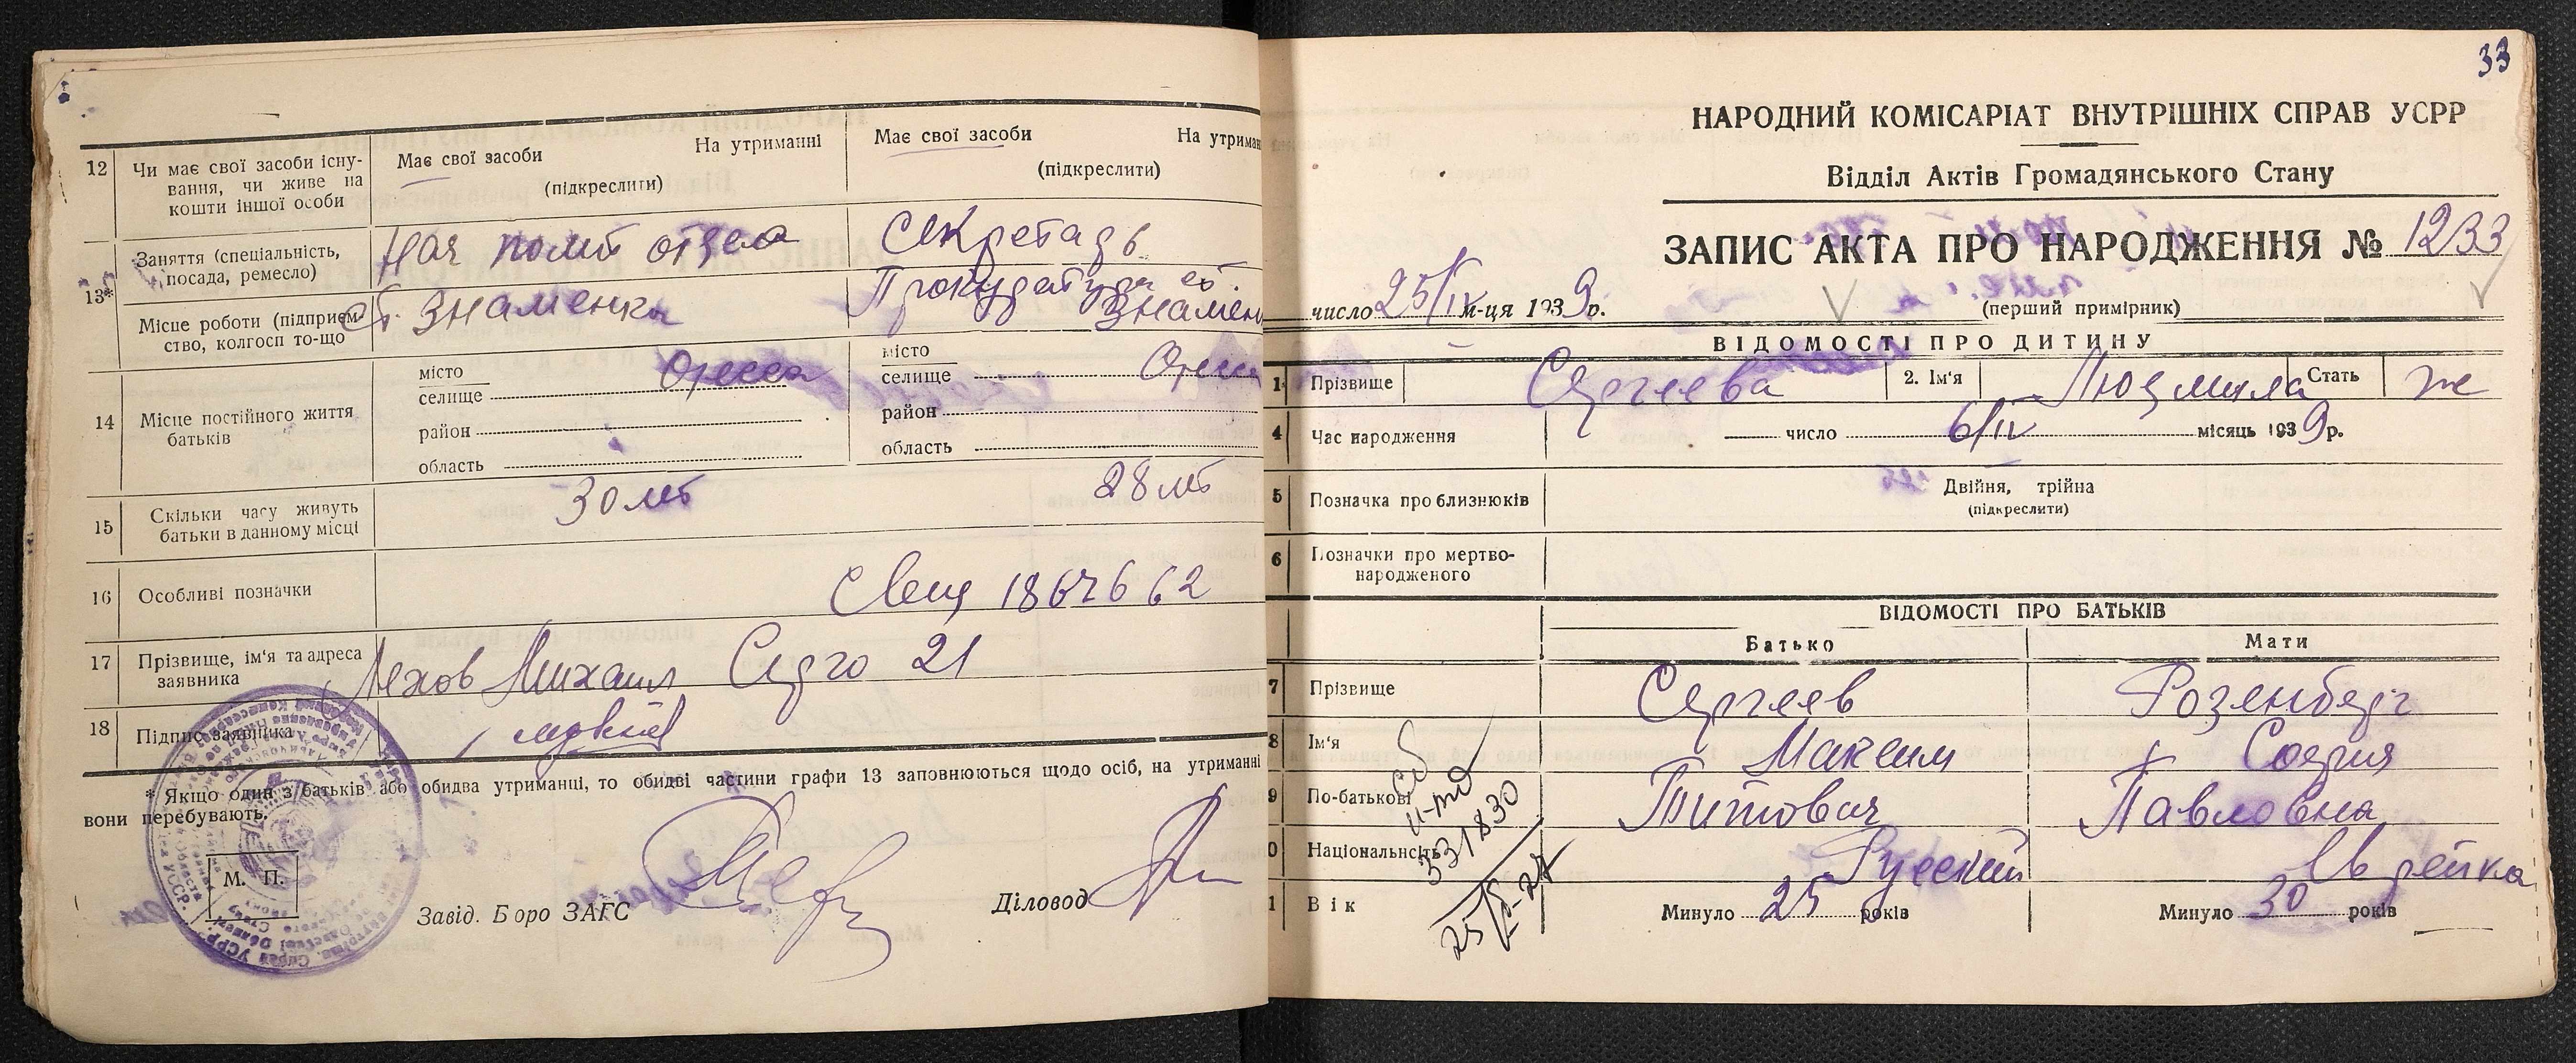 12
Чи має свої засоби існу-
вання, чи живе на
кошти іншої особи
Має свої засоби На утриманні
(підкреслити)
Має свої засоби На утриман
(підкреслити)
13*
Заняття (спеціальність,
посада, ремесло)
Нач полит отдела
Секретарь
Місце роботи (підприєм-
ство, колгосп то-що
ст. Знаменка
Прокуратура
Знамен
14
Місце постійного життя
батьків
місто
селище Одесса
район
область
місто
селище Одесс
район
область
15
Скільки часу живуть
батьки в данному місці
30 лет
28 лет
16
Особливі позначки
17
Прізвище, ім'я та адреса
заявника
Михаил 21
18
Підпис заявника
* Якщо один з батьків або обидва утриманці, то обидві частини графи 13 заповнюються щодо осіб, на утриманні
вони перебувають.
М. П.
Завід. Бюро ЗАГС
Діловод
33
НАРОДНИЙ КОМІСАРІАТ ВНУТРІШНІХ СПРАВ УСРР
Відділ Актів Громадянського Стану
ЗАПИС АКТА ПРО НАРОДЖЕННЯ № 1233
число 25/IV м-ця 1939 р.
(перший примірник)
ВІДОМОСТІ ПРО ДИТИНУ
1 Прізвище Сергеева 2. Ім'я Людмила Стать ж
4 Час народження число 6/IV місяць 1939 р.
5 Позначка про близнюків Двійня, трійна
(підкреслити)
6 Позначки про мертво-
народженого
ВІДОМОСТІ ПРО БАТЬКІВ
Батько Мати
7 Прізвище Сергеев Розенберг
8 Ім'я Максим София
9 По-батькові Титович Павловна
0 Національнсть Русский Еврейка
1 Вік Минуло 25 років Минуло 30 років
331830